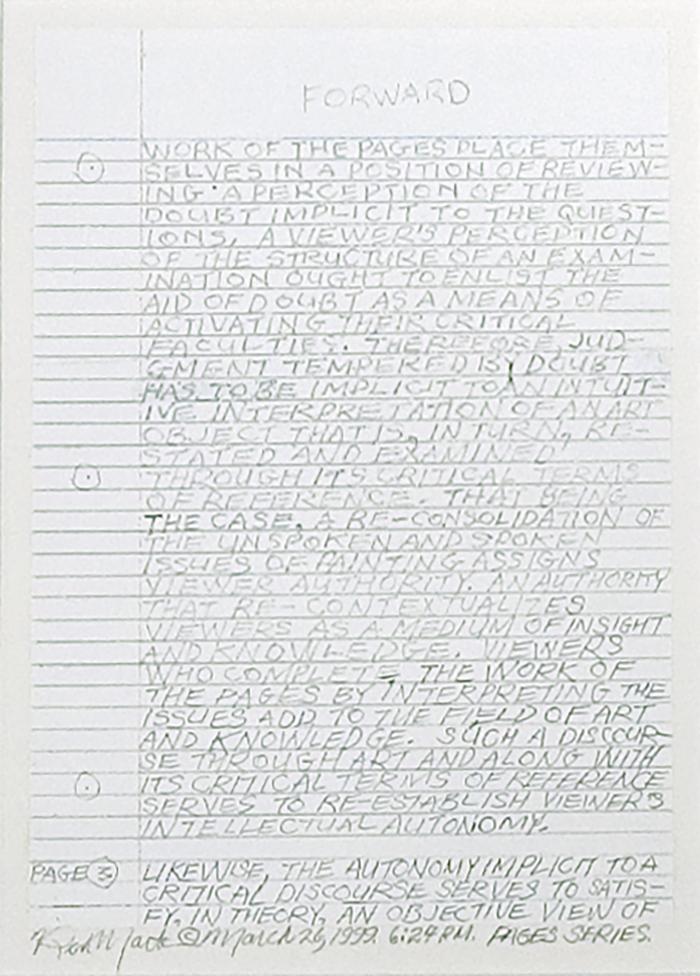 FORWARD
WORK OF THE PAGES PLACE THEM-
SELVES IN A POSITION OF REVIEW-
ING A PERCEPTION OF THE
DOUBT IMPLICIT TO THE QUEST-
IONS, A VIEWER'S PERCEPTION
OF THE STRUCTURE OF AN EXAM-
INATION OUGHT TO ENLIST THE
AID OF DOUBT AS A MEANS OF
ACTIVATING THEIR CRITICAL
FACULTIES. THEREFORE, JUD-
GEMENT TEMPERED BY DOUBT
HAS TO BE IMPLICIT TO AN INTUIT-
IVE INTERPRETATION OF AN ART
OBJECT THAT IS, IN TURN, RE-
STATED AND EXAMINED
THROUGH ITS CRITICAL TERMS
OF REFERENCE. THAT BEING
THE CASE, A RE-CONSOLIDATION OF
THE UNSPOKEN AND SPOKEN
ISSUES OF PAINTING ASSIGNS
VIEWER AUTHORITY. AN AUTHORITY
THAT RE-CONTEXTUALIZES
VIEWERS AS A MEDIUM OF INSIGHT
AND KNOWLEDGE. VIEWERS
WHO COMPLETE THE WORK OF
THE PAGES BY INTERPRETING THE
ISSUES ADD TO THE FIELD OF ART
AND KNOWLEDGE. SUCH A DISCOUR-
SE THROUGH ART AND ALONG WITH
ITS CRITICAL TERMS OF REFERENCE
SERVES TO RE-ESTABLISH VIEWER'S
INTELLECTUAL AUTONOMY.
PAGE 3 LIKEWISE, THE AUTONOMY IMPLICIT TO A
CRITICAL DISCOURSE SERVES TO SATIS-
FY, IN THEORY, AN OBJECTIVE VIEW OF
© March 26, 1999. 6:24 P.M. PAGES SERIES.